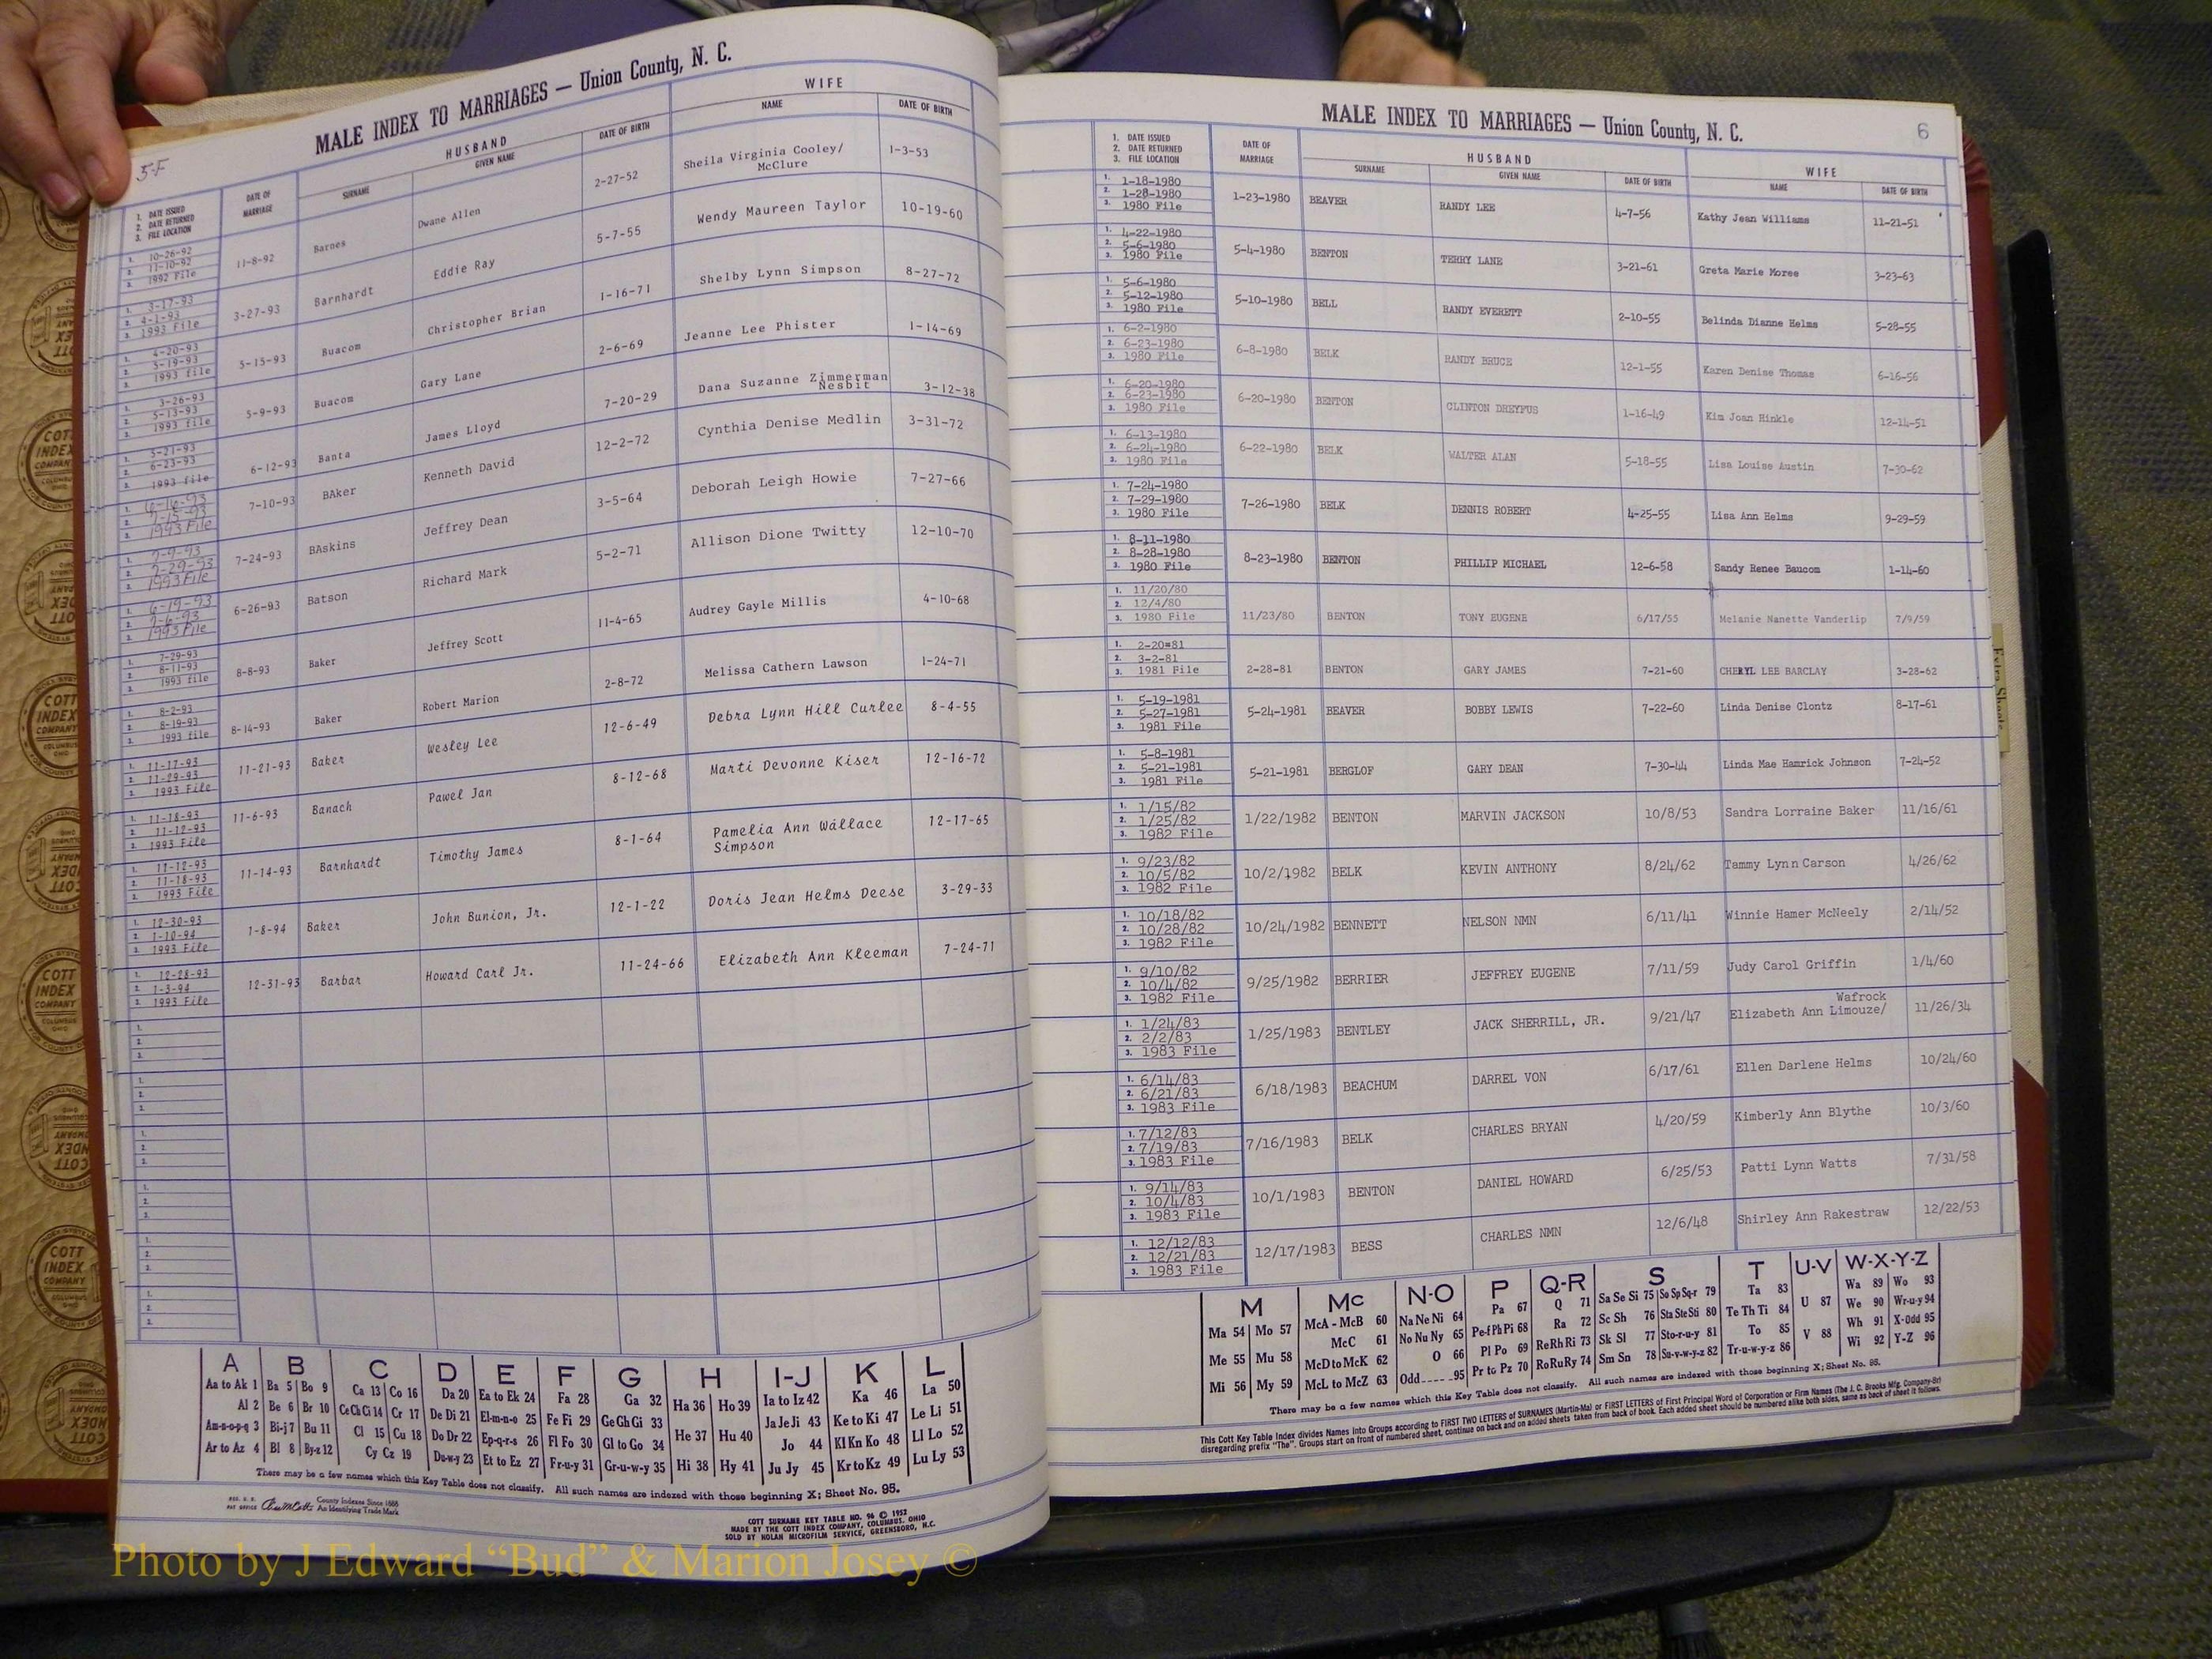 MALE INDEX TO MARRIAGES — Union County, N. C.
5-F
1. DATE ISSUED
2. DATE RETURNED
3. FILE LOCATION
DATE OF MARRIAGE
HUSBAND
SURNAME
GIVEN NAME
DATE OF BIRTH
WIFE
NAME
DATE OF BIRTH
1. 10-26-92
2. 11-10-92
3. 1992 File
11-8-92 Barnes Dwane Allen 2-27-52 Sheila Virginia Cooley/ McClure 1-3-53
1. 3-17-93
2. 4-1-93
3. 1993 File
3-27-93 Barnhardt Eddie Ray 5-7-55 Wendy Maureen Taylor 10-19-60
1. 4-20-93
2. 5-19-93
3. 1993 file
5-15-93 Buacom Christopher Brian 1-16-71 Shelby Lynn Simpson 8-27-72
1. 3-26-93
2. 5-13-93
3. 1993 file
5-9-93 Buacom Gary Lane 2-6-69 Jeanne Lee Phister 1-14-69
1. 5-21-93
2. 6-23-93
3. 1993 file
6-12-93 Banta James Lloyd 7-20-29 Dana Suzanne Zimmerman Nesbit 3-12-38
1. 6-16-93
2. 7-15-93
3. 1993 File
7-10-93 BAker Kenneth David 12-2-72 Cynthia Denise Medlin 3-31-72
1. 7-9-93
2. 7-29-93
3. 1993 File
7-24-93 BAskins Jeffrey Dean 3-5-64 Deborah Leigh Howie 7-27-66
1. 6-19-93
2. 7-6-93
3. 1993 File
6-26-93 Batson Richard Mark 5-2-71 Allison Dione Twitty 12-10-70
1. 7-29-93
2. 8-11-93
3. 1993 file
8-8-93 Baker Jeffrey Scott 11-4-65 Audrey Gayle Millis 4-10-68
1. 8-2-93
2. 8-19-93
3. 1993 file
8-14-93 Baker Robert Marion 2-8-72 Melissa Cathern Lawson 1-24-71
1. 11-17-93
2. 11-29-93
3. 1993 File
11-21-93 Baker Wesley Lee 12-6-49 Debra Lynn Hill Curlee 8-4-55
1. 11-18-93
2. 11-12-93
3. 1993 File
11-6-93 Banach Pawel Jan 8-12-68 Marti Devonne Kiser 12-16-72
1. 11-12-93
2. 11-18-93
3. 1993 File
11-14-93 Barnhardt Timothy James 8-1-64 Pamelia Ann Wallace Simpson 12-17-65
1. 12-30-93
2. 1-10-94
3. 1993 File
1-8-94 Baker John Bunion, Jr. 12-1-22 Doris Jean Helms Deese 3-29-33
1. 12-28-93
2. 1-3-94
3. 1993 File
12-31-93 Barbar Howard Carl Jr. 11-24-66 Elizabeth Ann Kleeman 7-24-71
A B C D E F G H I-J K L
Aa to Ak 1 Ba 5 Bo 9 Ca 13 Co 16 Da 20 Ea to Ek 24 Fa 28 Ga 32 Ha 36 Ho 39 Ia to Iz 42 Ka 46 La 50
Al 2 Be 6 Br 10 Ce Ch Ci 14 Cr 17 De Di 21 El-m-n-o 25 Fe Fi 29 Ge Gh Gi 33 He 37 Hu 40 Ja Je Ji 43 Ke to Ki 47 Le Li 51
Am-n-o-p-q 3 Bi-j 7 Bu 11 Cl 15 Cu 18 Do Dr 22 Ep-q-r-s 26 Fl Fo 30 Gl to Go 34 Jo 44 Kl Kn Ko 48 Ll Lo 52
Ar to Az 4 Bl 8 By-z 12 Cy Cz 19 Du-w-y 23 Et to Ez 27 Fr-u-y 31 Gr-u-w-y 35 Hi 38 Hy 41 Ju Jy 45 Kr to Kz 49 Lu Ly 53
There may be a few names which this Key Table does not classify. All such names are indexed with those beginning X; Sheet No. 95.
REG. U. S. PAT OFFICE
County Indexes Since 1888
An Identifying Trade Mark
COTT SURNAME KEY TABLE NO. 96 © 1952
MADE BY THE COTT INDEX COMPANY, COLUMBUS, OHIO
SOLD BY NOLAN MICROFILM SERVICE, GREENSBORO, N.C.
MALE INDEX TO MARRIAGES — Union County, N. C.
6
1. DATE ISSUED
2. DATE RETURNED
3. FILE LOCATION
DATE OF MARRIAGE
HUSBAND
SURNAME
GIVEN NAME
DATE OF BIRTH
WIFE
NAME
DATE OF BIRTH
1. 1-18-1980
2. 1-28-1980
3. 1980 File
1-23-1980 BEAVER RANDY LEE 4-7-56 Kathy Jean Williams 11-21-51
1. 4-22-1980
2. 5-6-1980
3. 1980 File
5-4-1980 BENTON TERRY LANE 3-21-61 Greta Marie Moree 3-23-63
1. 5-6-1980
2. 5-12-1980
3. 1980 File
5-10-1980 BELL RANDY EVERETT 2-10-55 Belinda Dianne Helms 5-28-55
1. 6-2-1980
2. 6-23-1980
3. 1980 File
6-8-1980 BELK RANDY BRUCE 12-1-55 Karen Denise Thomas 6-16-56
1. 6-20-1980
2. 6-23-1980
3. 1980 File
6-20-1980 BENTON CLINTON DREYFUS 1-16-49 Kim Joan Hinkle 12-14-51
1. 6-13-1980
2. 6-24-1980
3. 1980 File
6-22-1980 BELK WALTER ALAN 5-18-55 Lisa Louise Austin 7-30-62
1. 7-24-1980
2. 7-29-1980
3. 1980 File
7-26-1980 BELK DENNIS ROBERT 4-25-55 Lisa Ann Helms 9-29-59
1. 8-11-1980
2. 8-28-1980
3. 1980 File
8-23-1980 BENTON PHILLIP MICHAEL 12-6-58 Sandy Renee Baucom 1-14-60
1. 11/20/80
2. 12/4/80
3. 1980 File
11/23/80 BENTON TONY EUGENE 6/17/55 Melanie Nanette Vanderlip 7/9/59
1. 2-20=81
2. 3-2-81
3. 1981 File
2-28-81 BENTON GARY JAMES 7-21-60 CHERYL LEE BARCLAY 3-28-62
1. 5-19-1981
2. 5-27-1981
3. 1981 File
5-24-1981 BEAVER BOBBY LEWIS 7-22-60 Linda Denise Clontz 8-17-61
1. 5-8-1981
2. 5-21-1981
3. 1981 File
5-21-1981 BERGLOF GARY DEAN 7-30-44 Linda Mae Hamrick Johnson 7-24-52
1. 1/15/82
2. 1/25/82
3. 1982 File
1/22/1982 BENTON MARVIN JACKSON 10/8/53 Sandra Lorraine Baker 11/16/61
1. 9/23/82
2. 10/5/82
3. 1982 File
10/2/1982 BELK KEVIN ANTHONY 8/24/62 Tammy Lynn Carson 4/26/62
1. 10/18/82
2. 10/28/82
3. 1982 File
10/24/1982 BENNETT NELSON NMN 6/11/41 Winnie Hamer McNeely 2/14/52
1. 9/10/82
2. 10/4/82
3. 1982 File
9/25/1982 BERRIER JEFFREY EUGENE 7/11/59 Judy Carol Griffin 1/4/60
1. 1/24/83
2. 2/2/83
3. 1983 File
1/25/1983 BENTLEY JACK SHERRILL, JR. 9/21/47 Elizabeth Ann Limouze/ Wafrock 11/26/34
1. 6/14/83
2. 6/21/83
3. 1983 File
6/18/1983 BEACHUM DARREL VON 6/17/61 Ellen Darlene Helms 10/24/60
1. 7/12/83
2. 7/19/83
3. 1983 File
7/16/1983 BELK CHARLES BRYAN 4/20/59 Kimberly Ann Blythe 10/3/60
1. 9/14/83
2. 10/4/83
3. 1983 File
10/1/1983 BENTON DANIEL HOWARD 6/25/53 Patti Lynn Watts 7/31/58
1. 12/12/83
2. 12/21/83
3. 1983 File
12/17/1983 BESS CHARLES NMN 12/6/48 Shirley Ann Rakestraw 12/22/53
M Mc N-O P Q-R S T U-V W-X-Y-Z
Ma 54 Mo 57 McA - McB 60 Na Ne Ni 64 Pa 67 Q 71 Sa Se Si 75 So Sp Sq-r 79 Ta 83 U 87 Wa 89 Wo 93
McC 61 No Nu Ny 65 Pe-f Ph Pi 68 Ra 72 Sc Sh 76 Sta Ste Sti 80 Te Th Ti 84 We 90 Wr-u-y 94
Me 55 Mu 58 McD to McK 62 O 66 Pl Po 69 Re Rh Ri 73 Sk Sl 77 Sto-r-u-y 81 To 85 V 88 Wh 91 X-Odd 95
Mi 56 My 59 McL to McZ 63 Odd 95 Pr to Pz 70 Ro Ru Ry 74 Sm Sn 78 Su-v-w-y-z 82 Tr-u-w-y-z 86 Wi 92 Y-Z 96
There may be a few names which this Key Table does not classify. All such names are indexed with those beginning X; Sheet No. 95.
This Cott Key Table Index divides Names into Groups according to FIRST TWO LETTERS of SURNAMES (Martin-Ma) or FIRST LETTERS of First Principal Word of Corporation or Firm Names (The J. C. Brooks Mfg. Company-Br)
disregarding prefix "The". Groups start on front of numbered sheet, continue on back and on added sheets taken from back of book. Each added sheet should be numbered alike both sides, same as back of sheet it follows.
Extra Sheets
COTT INDEX COMPANY
Photo by J Edward “Bud” & Marion Josey ©